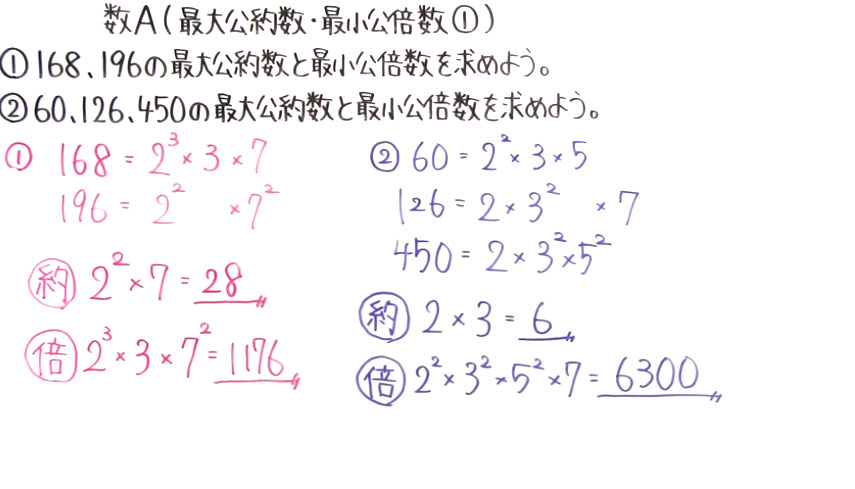 数A(最大公約数・最小公倍数①)
①168、196の最大公約数と最小公倍数を求めよう。
②60、126、450の最大公約数と最小公倍数を求めよう。
① 168 = 2³ × 3 × 7
196 = 2² × 7²
約 2² × 7 = 28
倍 2³ × 3 × 7² = 1176
② 60 = 2² × 3 × 5
126 = 2 × 3² × 7
450 = 2 × 3² × 5²
約 2 × 3 = 6
倍 2² × 3² × 5² × 7 = 6300